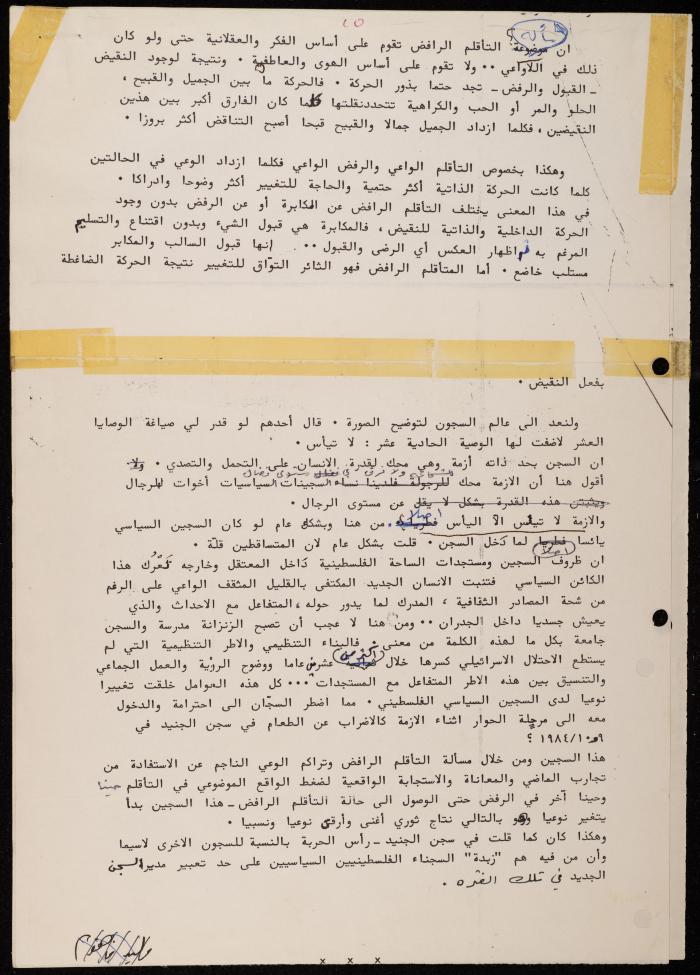 ٢٥
مسألة
ان موضوعة التأقلم الرافض تقوم على أساس الفكر والعقلانية حتى ولو كان
ذلك في اللاواعي ٠٠ ولا تقوم على أساس الهوى والعاطفية ٠ ونتيجة لوجود النقيض
ـ القبول والرفض ـ تجد حتما بذور الحركة ٠ فالحركة ما بين الجميل والقبيح ،
الحلو والمر أو الحب والكراهية تتحددنقلتها كلما كان الفارق أكبر بين هذين
النقيضين ، فكلما ازداد الجميل جمالا والقبيح قبحا أصبح التناقض أكثر بروزا ٠
وهكذا بخصوص التأقلم الواعي والرفض الواعي فكلما ازداد الوعي في الحالتين
كلما كانت الحركة الذاتية أكثر حتمية والحاجة للتغيير أكثر وضوحا وادراكا ٠
في هذا المعنى يختلف التأقلم الرافض عن المكابرة أو عن الرفض بدون وجود
الحركة الداخلية والذاتية للنقيض ، فالمكابرة هي قبول الشيء وبدون اقتناع والتسليم
المرغم به واظهار العكس أي الرضى والقبول ٠٠ انها قبول السالب والمكابر
مستلب خاضع ٠ أما المتأقلم الرافض فهو الثائر التواق للتغيير نتيجة الحركة الضاغطة
بفعل النقيض ٠
ولنعد الى عالم السجون لتوضيح الصورة ٠ قال أحدهم لو قدر لي صياغة الوصايا
العشر لاضفت لها الوصية الحادية عشر : لا تيأس ٠
ان السجن بحد ذاته أزمة وهي محك لقدرة الانسان على التحمل والتصدي ٠ ولا
أقول هنا أن الازمة محك للرجولة فلدينا نساء السجينات السياسيات أخوات للرجال
ويثبتن هذه القدرة بشكل لا يقل عن مستوى الرجال ٠
والازمة لا تيأس الا اليأس فطريا اصلا ٠ من هنا وبشكل عام لو كان السجين السياسي
يائسا فطريا اصلا لما دخل السجن ٠ قلت بشكل عام لان المتساقطين قلة ٠
ان ظروف السجين ومستجدات الساحة الفلسطينية داخل المعتقل وخارجه تحرك هذا
الكائن السياسي فتثبت الانسان الجديد المكتفى بالقليل المثقف الواعي على الرغم
من شحة المصادر الثقافية ، المدرك لما يدور حوله ، المتفاعل مع الاحداث والذي
يعيش جسديا داخل الجدران ٠٠ ومن هنا لا عجب أن تصبح الزنزانة مدرسة والسجن
جامعة بكل ما لهذه الكلمة من معنى ٠ فالبناء التنظيمي والاطر التنظيمية التي لم
يستطع الاحتلال الاسرائيلي كسرها خلال أكثر من عشرين عاما ووضوح الرؤية والعمل الجماعي
والتنسيق بين هذه الاطر المتفاعل مع المستجدات ٠٠٠ كل هذه العوامل خلقت تغييرا
نوعيا لدى السجين السياسي الفلسطيني ٠ مما اضطر السجان الى احترامة والدخول
معه الى مرحلة الحوار اثناء الازمة كالاضراب عن الطعام في سجن الجنيد في
٩ و ١٩٨٤/١٠ ؟
هذا السجين ومن خلال مسألة التأقلم الرافض وتراكم الوعي الناجم عن الاستفادة من
تجارب الماضي والمعاناة والاستجابة الواقعية لضغط الواقع الموضوعي في التأقلم حينا
وحينا آخر في الرفض حتى الوصول الى حالة التأقلم الرافض ـ هذا السجين بدأ
يتغير نوعيا وهو بالتالي نتاج ثوري أغنى وأرقى نوعيا ونسبيا ٠
وهكذا كان كما قلت في سجن الجنيد ـ رأس الحربة بالنسبة للسجون الاخرى لاسيما
وأن من فيه هم "زبدة" السجناء الفلسطينيين السياسيين على حد تعبير مدير السجن
الجديد في تلك الفتره ٠
x x x